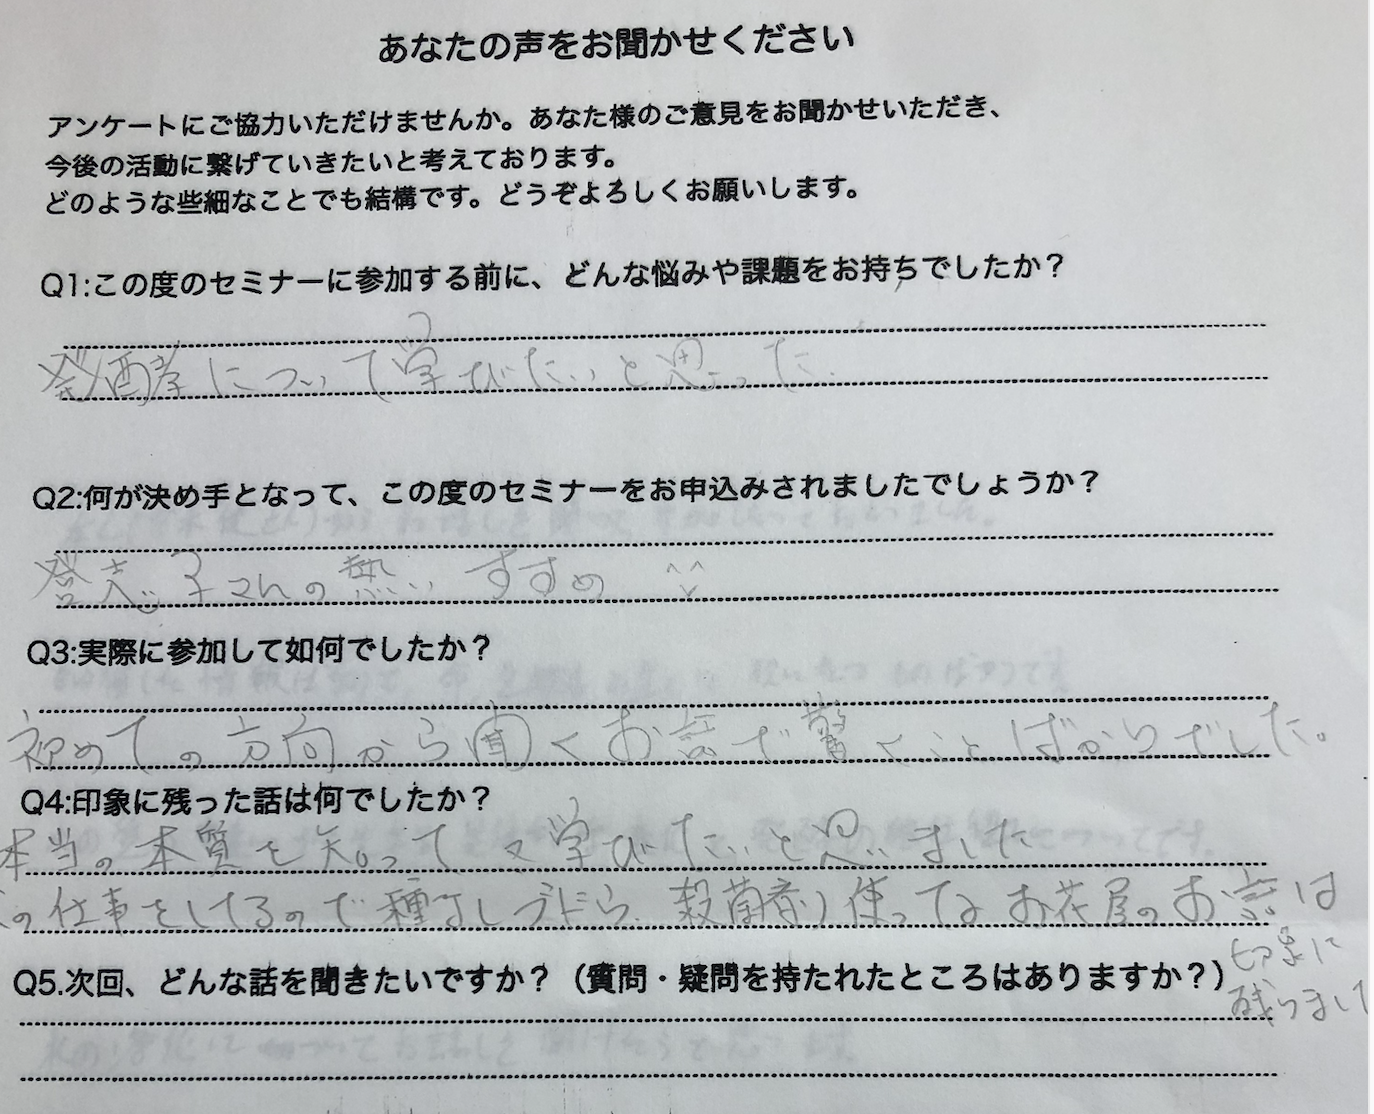 あなたの声をお聞かせください
アンケートにご協力いただけませんか。あなた様のご意見をお聞かせいただき、
今後の活動に繋げていきたいと考えております。
どのような些細なことでも結構です。どうぞよろしくお願いします。
Q1:この度のセミナーに参加する前に、どんな悩みや課題をお持ちでしたか？
発酵について学びたいと思った。
Q2:何が決め手となって、この度のセミナーをお申込みされましたでしょうか？
子さんの熱いすすめ ^^
Q3:実際に参加して如何でしたか？
初めての方向から聞くお話で驚くことばかりでした。
Q4:印象に残った話は何でしたか？
本当の本質を知って学びたいと思いました
の仕事をしてるので種なしブドウ 殺菌剤 使って お花屋のお話は
印象に
残りまし
Q5.次回、どんな話を聞きたいですか？（質問・疑問を持たれたところはありますか？）